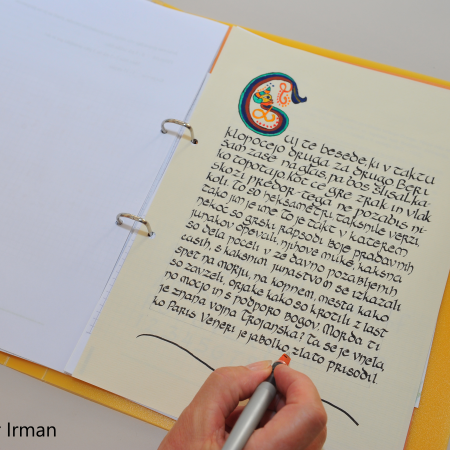 Čuj te besede ki v taktu
klopočejo druga za drugo beri
sam zase naglas pa boš slišal ka-
ko topotajo kot če gre zrak in vlak
skozi predor - tega ne pozabiš ni-
koli. To so heksametri, takšnile verzi,
tako jim je ime, to je takt v katerem
nekoč so grški rapsodi boje pradavnih
junakov opevali, njihove muke, kakšna
so dela počeli v že davno pozabljenih
časih, s kakšnim junaštvom so se izkazali
spet na morju, na kopnem, mesta kako
so zavzeli, orjake kako so krotili z last
no močjo in s podporo bogov. Morda ti
je znana vojna Trojanska? Ta se je vnela,
ko Paris Veneri je jabolko zlato prisodil.
Irman